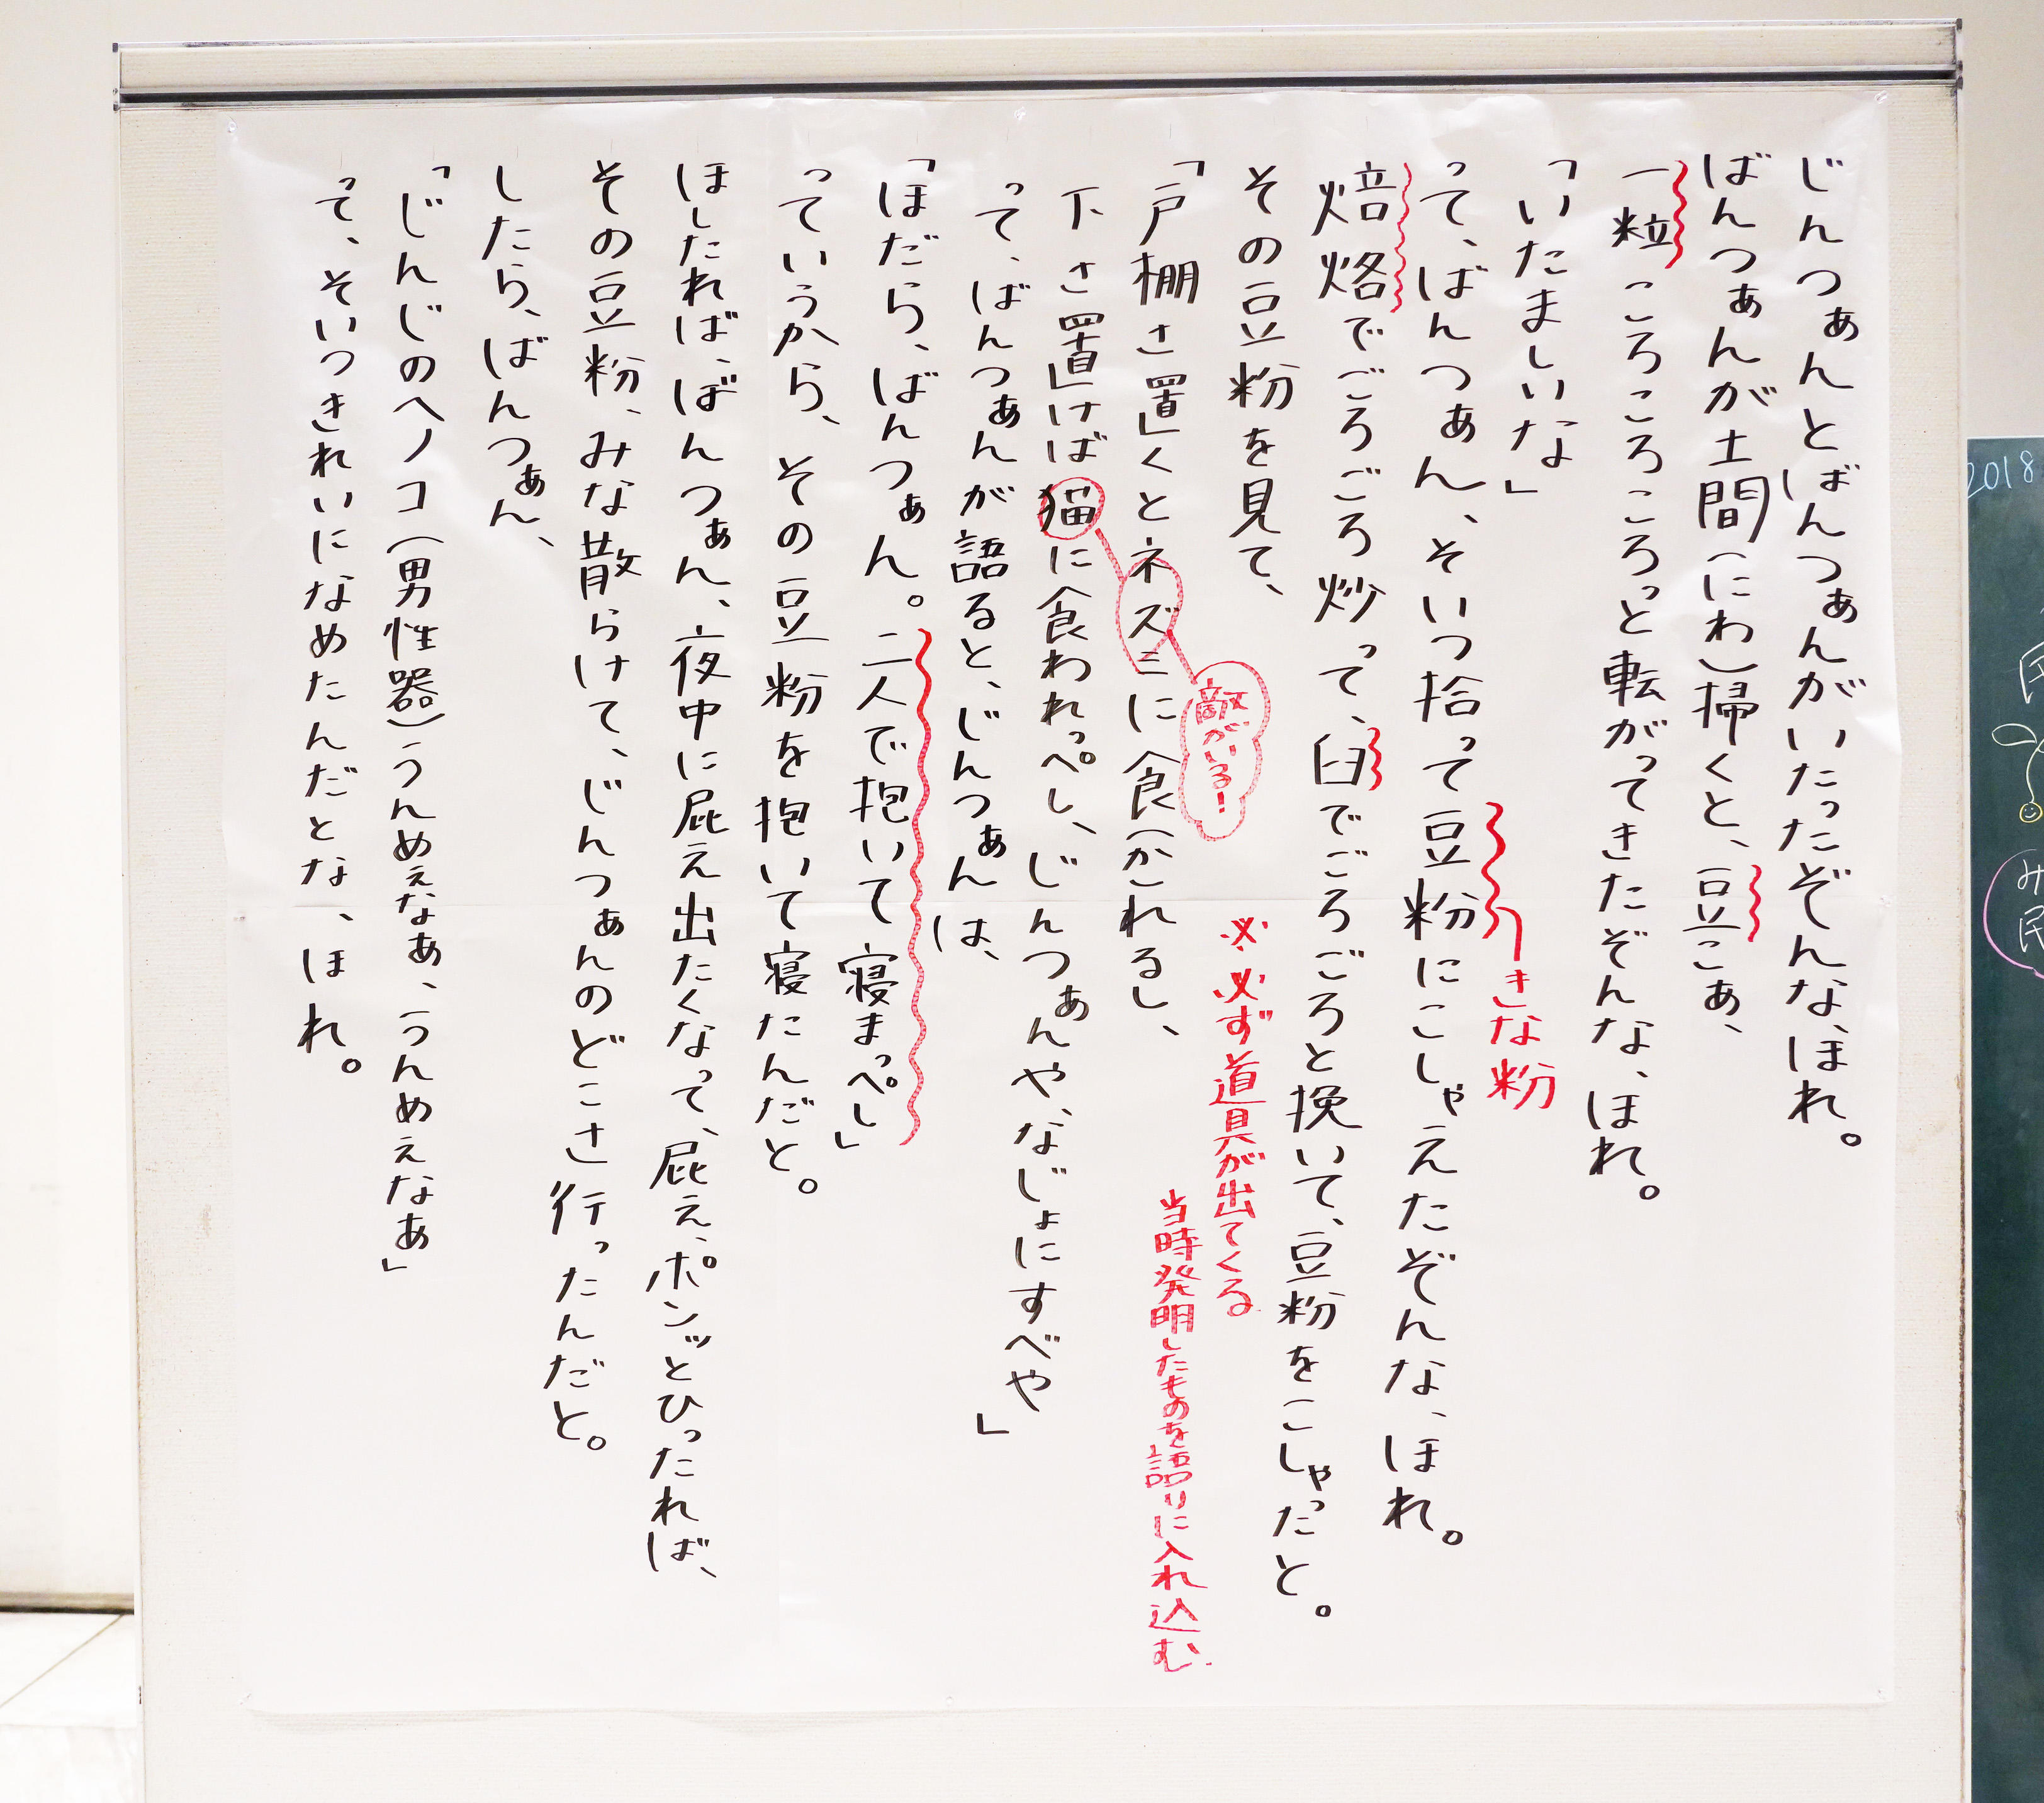 じんつぁんとばんつぁんがいたったぞんな、ほれ。
ばんつぁんが土間（にわ）掃くと、豆こぁ、
一粒ころころころころっと転がってきたぞんな、ほれ。
「いたましいな」
って、ばんつぁん、そいつ拾って豆粉にこしゃえたぞんな、ほれ。
きな粉
焙烙でごろごろ炒って、臼でごろごろと挽いて、豆粉をこしゃだっと。
その豆粉を見て、
「戸棚さ置くとネズミに食（か）れるし、
敵がいる！
※必ず道具が出てくる
当時発明したものを語りに入れ込む
下さ置けば猫に食われっぺし、じんつぁんや、なじょにすべや」
って、ばんつぁんが語ると、じんつぁんは、
「ほだら、ばんつぁん。二人で抱いて寝まっぺし」
っていうから、その豆粉を抱いて寝たんだと。
ほしたれば、ばんつぁん、夜中に屁え出たくなって、屁え、ポンッとひったれば、
その豆粉、みな散らけて、じんつぁんのどこさ行ったんだと。
したら、ばんつぁん、
「じんじのヘノコ（男性器）うんめぇなぁ、うんめぇなぁ」
って、そいつきれいになめたんだとな、ほれ。
2018